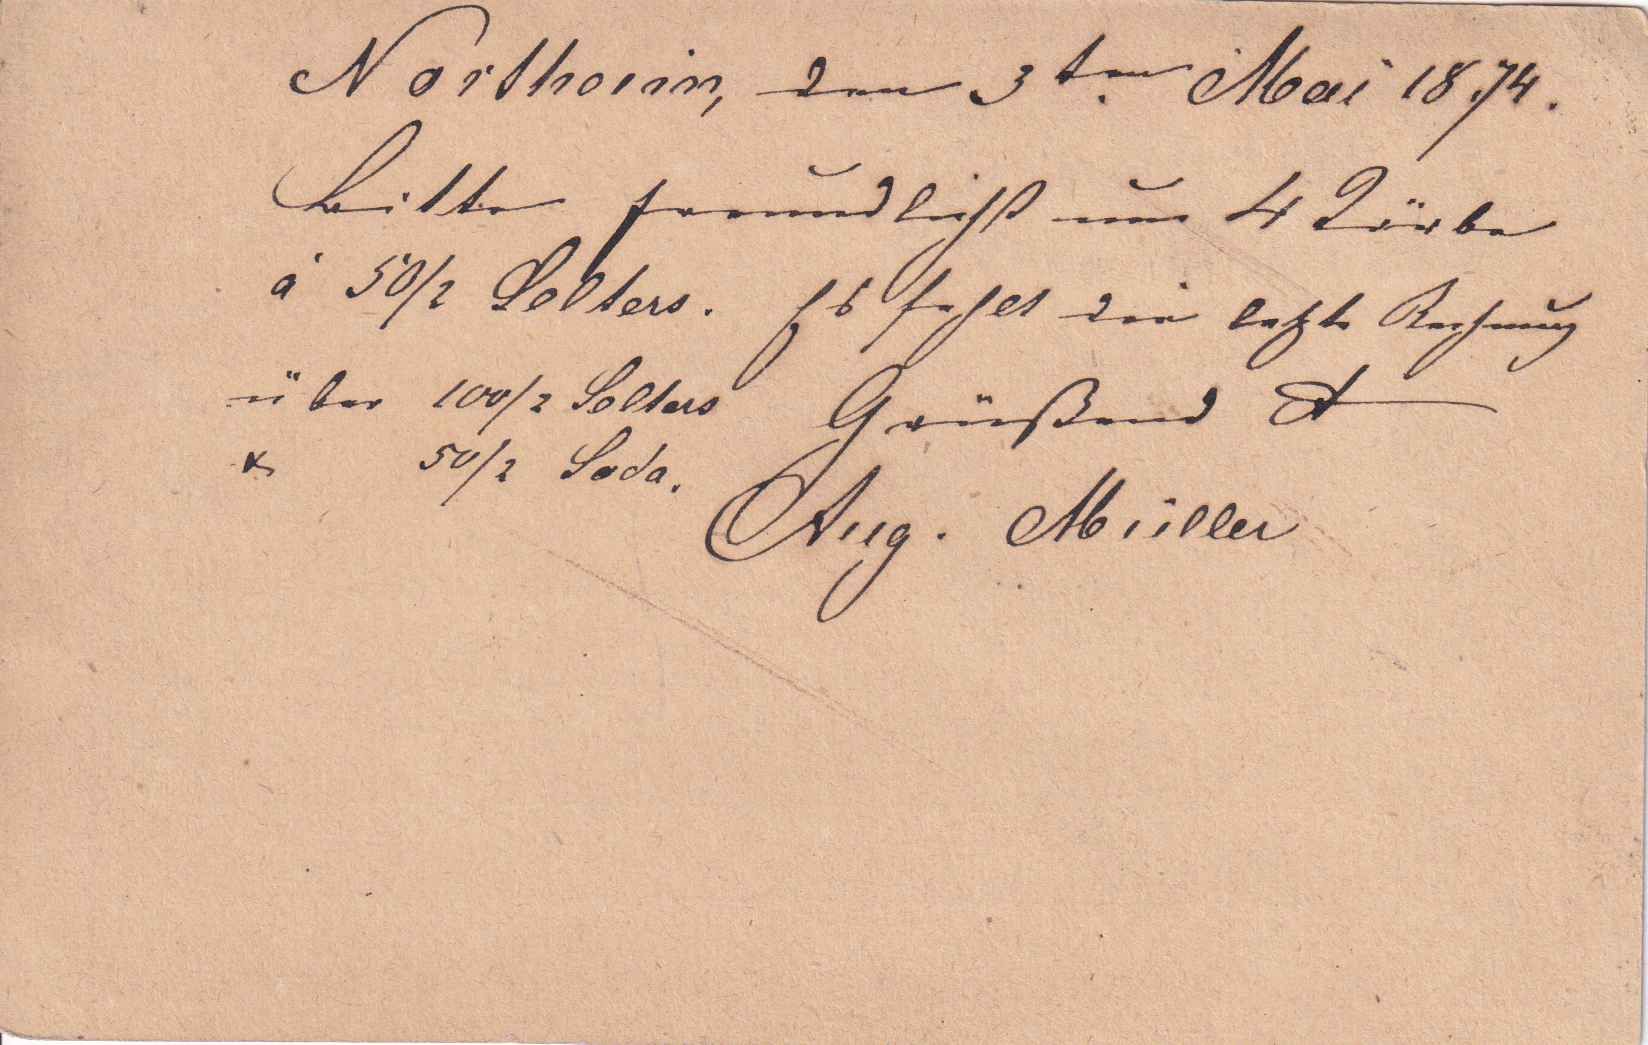 Northeim, den 3ten. Mai 1874.
Bitte freundlichst um 4 Körbe
à 50/2 Selters. Es fehlt die letzte Rechnung
über 100/2 Selters Grüßend
& 50/2 Soda.
Aug. Müller